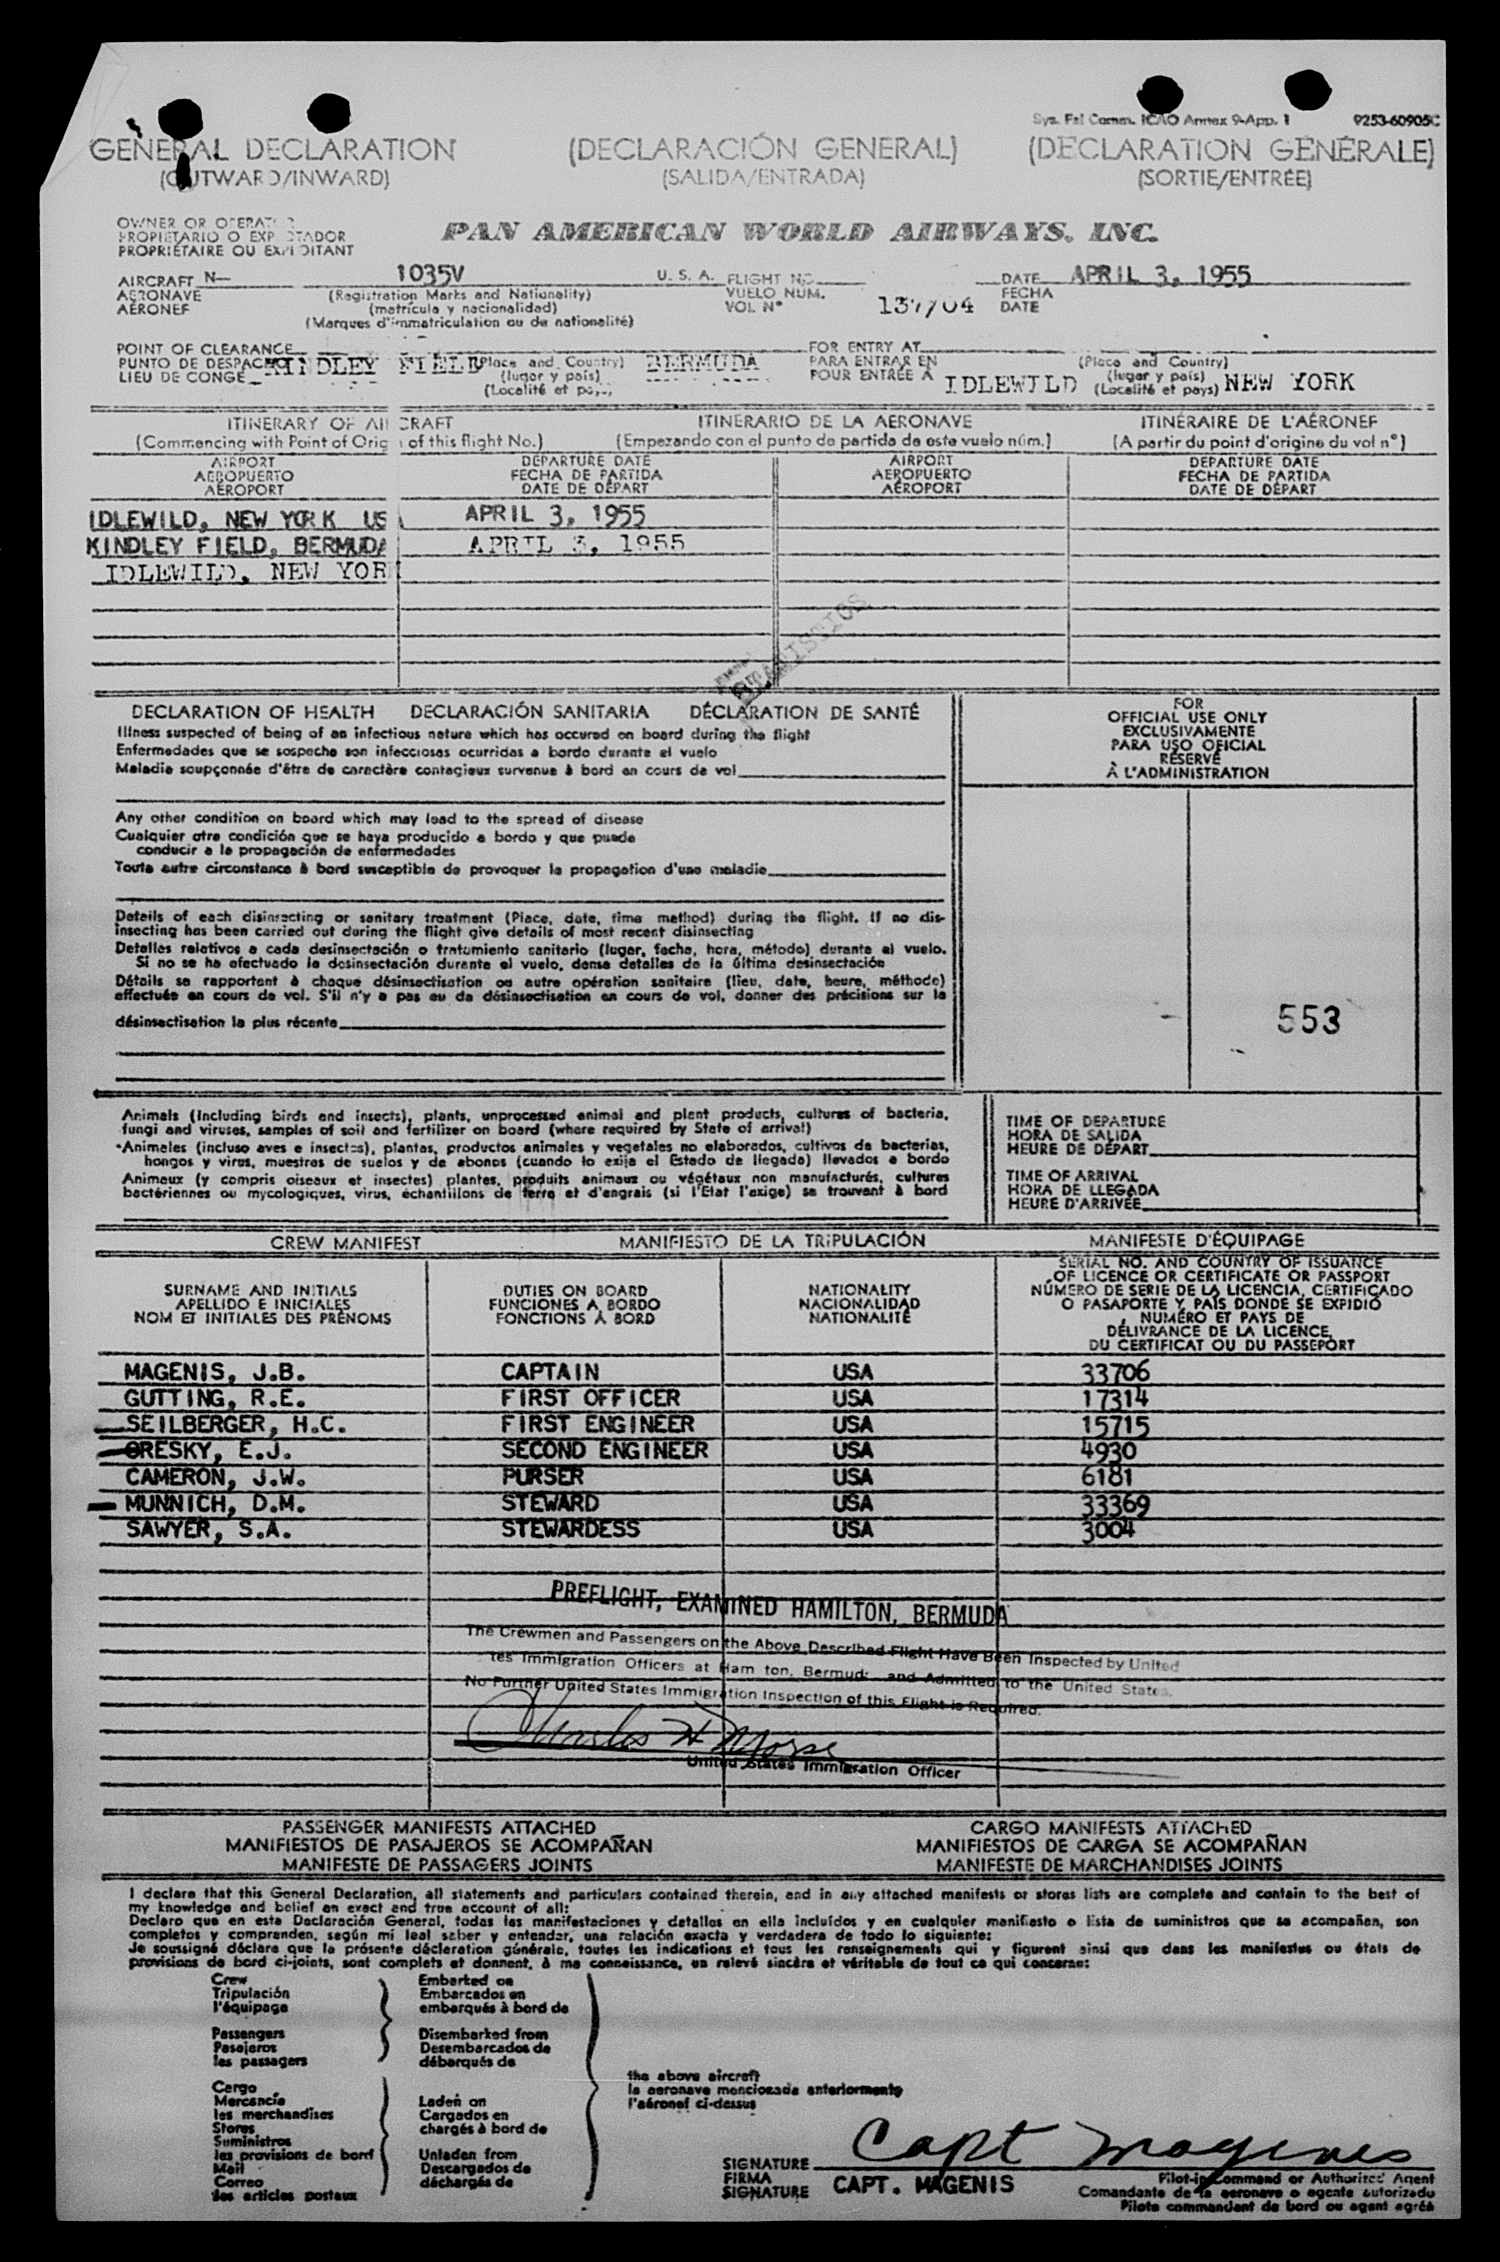 Sys. Fal Comm. ICAO Annex 9-App. 1 9253-60905C
GENERAL DECLARATION (DECLARACIÓN GENERAL) (DÉCLARATION GÉNÉRALE)
(OUTWARD/INWARD) (SALIDA/ENTRADA) (SORTIE/ENTRÉE)
OWNER OR OPERATOR
PROPIETARIO O EXPLOTADOR
PROPRIÉTAIRE OU EXPLOITANT
PAN AMERICAN WORLD AIRWAYS, INC.
AIRCRAFT N— 1035V U. S. A. FLIGHT NO. DATE APRIL 3, 1955
AERONAVE (Registration Marks and Nationality) VUELO NUM. FECHA
AÉRONEF (matrícula y nacionalidad) VOL N° DATE
(Marques d'immatriculation ou de nationalité)
POINT OF CLEARANCE FOR ENTRY AT
PUNTO DE DESPACHO KINDLEY FIELD (Place and Country) BERMUDA PARA ENTRAR EN (Place and Country)
LIEU DE CONGÉ (lugar y país) POUR ENTRÉE A IDLEWILD (lugar y país) NEW YORK
(Localité et pays) (Localité et pays)
ITINERARY OF AIRCRAFT ITINERARIO DE LA AERONAVE ITINÉRAIRE DE L'AÉRONEF
(Commencing with Point of Origin of this flight No.) (Empezando con el punto de partida de este vuelo núm.) (A partir du point d'origine du vol n°)
AIRPORT DEPARTURE DATE AIRPORT DEPARTURE DATE
AEROPUERTO FECHA DE PARTIDA AEROPUERTO FECHA DE PARTIDA
AÉROPORT DATE DE DÉPART AÉROPORT DATE DE DÉPART
IDLEWILD, NEW YORK US APRIL 3, 1955
KINDLEY FIELD, BERMUDA APRIL 3, 1955
IDLEWILD, NEW YOR
STATISTICS
DECLARATION OF HEALTH DECLARACIÓN SANITARIA DÉCLARATION DE SANTÉ
Illness suspected of being of an infectious nature which has occured on board during the flight
Enfermedades que se sospecha son infecciosas ocurridas a bordo durante el vuelo
Maladie soupçonnée d'être de caractère contagieux survenue à bord en cours de vol
FOR
OFFICIAL USE ONLY
EXCLUSIVAMENTE
PARA USO OFICIAL
RÉSERVÉ
À L'ADMINISTRATION
Any other condition on board which may lead to the spread of disease
Cualquier otra condición que se haya producido a bordo y que puede
conducir a la propagación de enfermedades
Toute autre circonstance à bord susceptible de provoquer la propagation d'une maladie
Details of each disinsecting or sanitary treatment (Place, date, time method) during the flight. If no dis-
insecting has been carried out during the flight give details of most recent disinsecting
Detalles relativos a cada desinsectación o tratamiento sanitario (lugar, fecha, hora, método) durante el vuelo.
Si no se ha efectuado la desinsectación durante el vuelo, dense detalles de la última desinsectación
Détails se rapportant à chaque désinsectisation ou autre opération sanitaire (lieu, date, heure, méthode)
effectuée en cours de vol. S'il n'y a pas eu de désinsectisation en cours de vol, donner des précisions sur la
désinsectisation la plus récente
553
Animals (including birds and insects), plants, unprocessed animal and plant products, cultures of bacteria,
fungi and viruses, samples of soil and fertilizer on board (where required by State of arrival)
Animales (incluso aves e insectos), plantas, productos animales y vegetales no elaborados, cultivos de bacterias,
hongos y virus, muestras de suelos y de abonos (cuando lo exija el Estado de llegada) llevados a bordo
Animaux (y compris oiseaux et insectes) plantes, produits animaux ou végétaux non manufacturés, cultures
bactériennes ou mycologiques, virus, échantillons de terre et d'engrais (si l'Etat l'exige) se trouvant à bord
TIME OF DEPARTURE
HORA DE SALIDA
HEURE DE DÉPART
TIME OF ARRIVAL
HORA DE LLEGADA
HEURE D'ARRIVÉE
CREW MANIFEST MANIFIESTO DE LA TRIPULACIÓN MANIFESTE D'ÉQUIPAGE
SURNAME AND INITIALS
APELLIDO E INICIALES
NOM ET INITIALES DES PRÉNOMS
DUTIES ON BOARD
FUNCIONES A BORDO
FONCTIONS À BORD
NATIONALITY
NACIONALIDAD
NATIONALITÉ
SERIAL NO. AND COUNTRY OF ISSUANCE
OF LICENCE OR CERTIFICATE OR PASSPORT
NÚMERO DE SERIE DE LA LICENCIA, CERTIFICADO
O PASAPORTE Y PAÍS DONDE SE EXPIDIÓ
NUMÉRO ET PAYS DE
DÉLIVRANCE DE LA LICENCE,
DU CERTIFICAT OU DU PASSEPORT
MAGENIS, J.B. CAPTAIN USA 33706
GUTTING, R.E. FIRST OFFICER USA 17314
SEILBERGER, H.C. FIRST ENGINEER USA 15715
ORESKY, E.J. SECOND ENGINEER USA 4930
CAMERON, J.W. PURSER USA 6181
MUNNICH, D.M. STEWARD USA 33369
SAWYER, S.A. STEWARDESS USA 3004
PREFLIGHT, EXAMINED HAMILTON, BERMUDA
The Crewmen and Passengers on the Above Described Flight Have Been Inspected by United
tes Immigration Officers at Ham ton, Bermuda and Admitted to the United States.
No Further United States Immigration Inspection of this Flight is Required.
Charles H Morse
United States Immigration Officer
PASSENGER MANIFESTS ATTACHED CARGO MANIFESTS ATTACHED
MANIFIESTOS DE PASAJEROS SE ACOMPAÑAN MANIFIESTOS DE CARGA SE ACOMPAÑAN
MANIFESTE DE PASSAGERS JOINTS MANIFESTE DE MARCHANDISES JOINTS
I declare that this General Declaration, all statements and particulars contained therein, and in any attached manifests or stores lists are complete and contain to the best of
my knowledge and belief an exact and true account of all:
Declaro que en esta Declaración General, todas las manifestaciones y detalles en ella incluídos y en cualquier manifiesto o lista de suministros que se acompañan, son
completos y comprenden, según mi leal saber y entender, una relación exacta y verdadera de todo lo siguiente:
Je soussigné déclare que la présente déclaration générale, toutes les indications et tous les renseignements qui y figurent ainsi que dans les manifestes ou états de
provisions de bord ci-joints, sont complets et donnent, à ma connaissance, un relevé sincère et véritable de tout ce qui concerne:
Crew Embarked on
Tripulación Embarcados en
l'équipage embarqués à bord de
Passengers Disembarked from
Pasajeros Desembarcados de
les passagers débarqués de
the above aircraft
la aeronave mencionada anteriormente
l'aéronef ci-dessus
Cargo
Mercancía Laden on
les marchandises Cargados en
Stores chargés à bord de
Suministros
les provisions de bord Unladen from
Mail Descargados de
Correo déchargés de
les articles postaux
Capt Magenis
SIGNATURE
FIRMA CAPT. MAGENIS
SIGNATURE
Pilot-in-Command or Authorized Agent
Comandante de la aeronave o agente autorizado
Pilote commandant de bord ou agent agréé